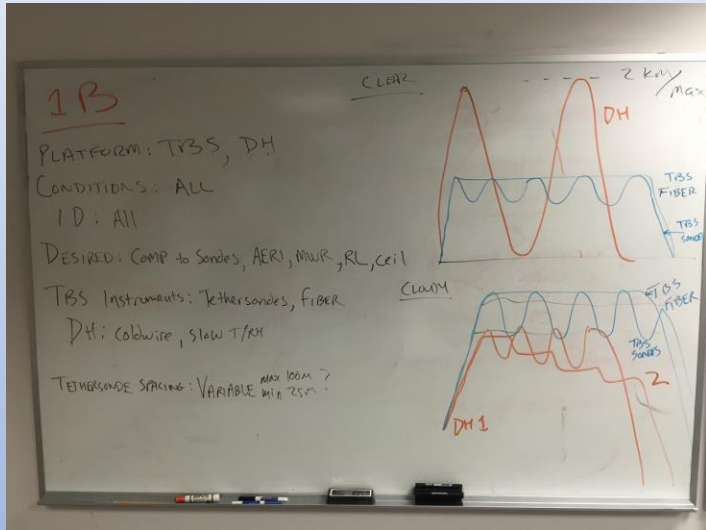 1B
PLATFORM: TBS, DH
CONDITIONS: ALL
ID: All
DESIRED: COMP to Sondes, AERI, MWR, RL, ceil
TBS Instruments: Tethersondes, FIBER
DH: Coldwire, slow T/RH
TETHERSONDE SPACING: VARIABLE max 100m ?
min 25m
CLEAR
2 km/
max
DH
TBS
FIBER
TBS
SONDES
CLOUDY
TBS
FIBER
TBS
SONDES
2
DH 1